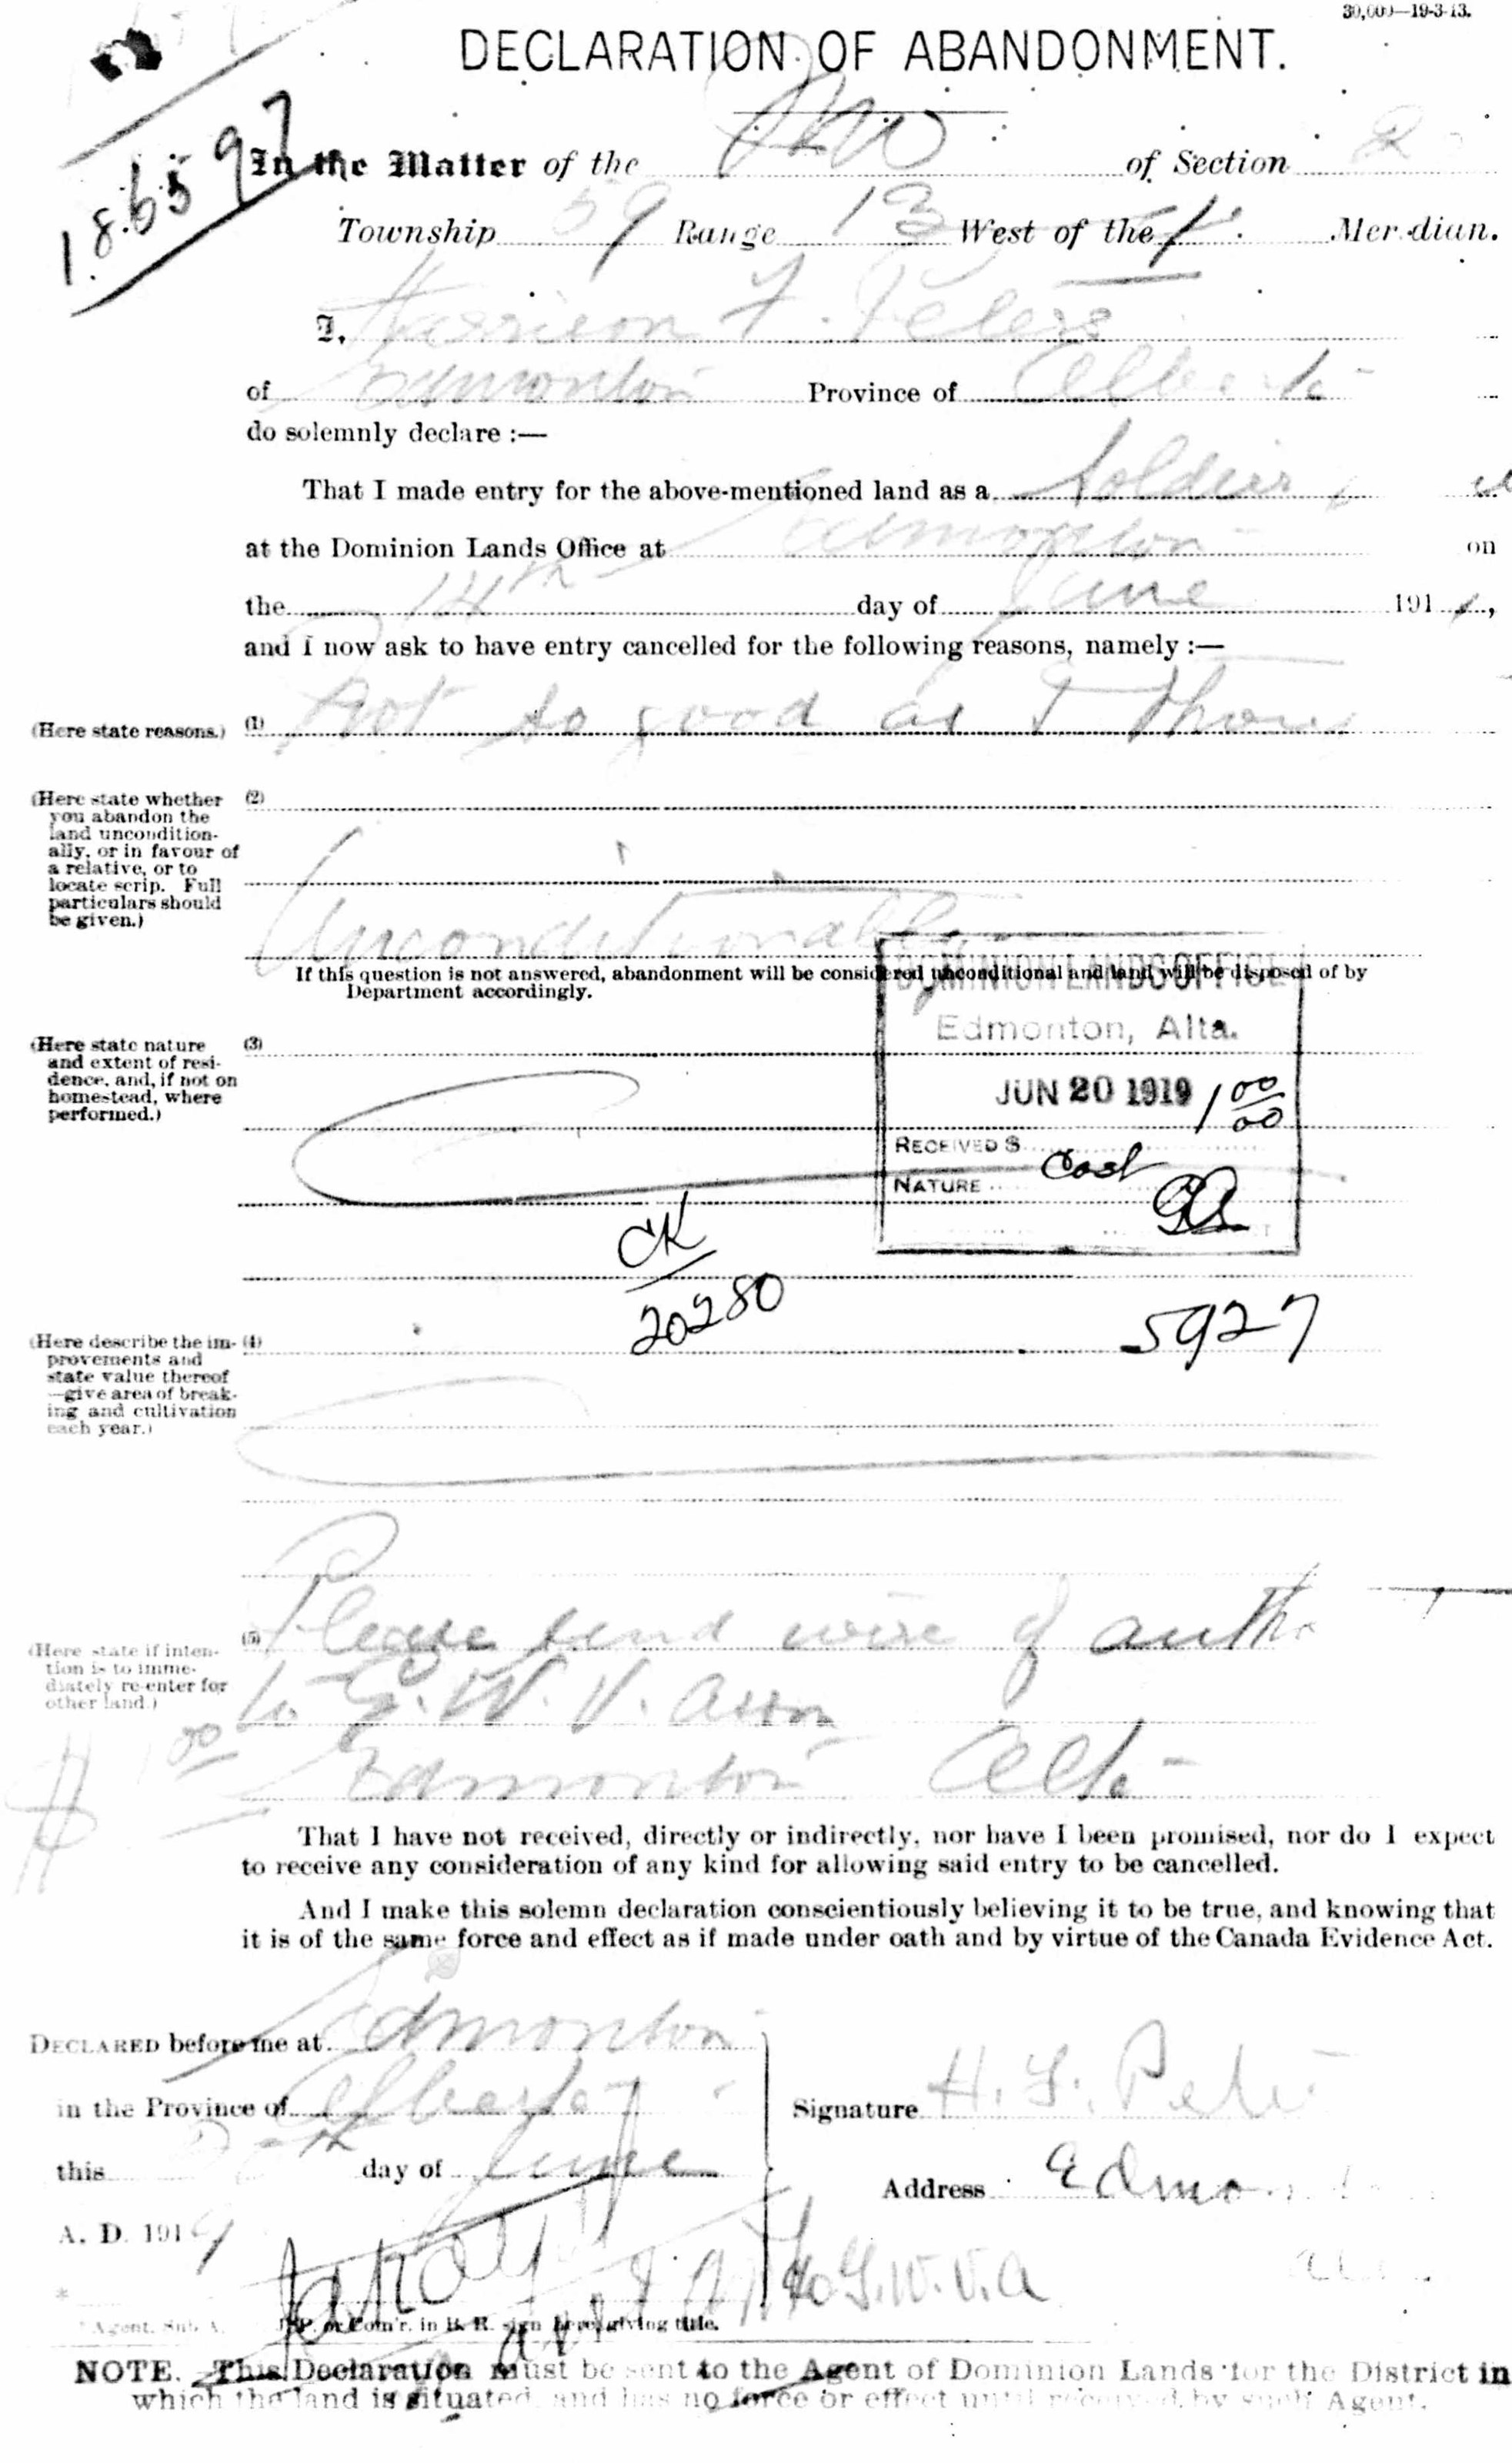 30,000—19-3-13.
DECLARATION OF ABANDONMENT.
186597
In the Matter of the of Section 2
Township 59 Range 13 West of the 4 Meridian.
I, Harrison F. Peters
of Edmonton Province of Alberta
do solemnly declare :—
That I made entry for the above-mentioned land as a Soldier
at the Dominion Lands Office at Edmonton on
the 14th day of June 191
and I now ask to have entry cancelled for the following reasons, namely :—
(Here state reasons.) (1) Not so good as I
(Here state whether you abandon the land unconditionally, or in favour of a relative, or to locate scrip. Full particulars should be given.) (2)
Unconditionally
If this question is not answered, abandonment will be considered unconditional and land will be disposed of by
Department accordingly.
DOMINION LANDS OFFICE
Edmonton, Alta.
JUN 20 1919 1 00/00
RECEIVED $
NATURE
(Here state nature and extent of residence, and, if not on homestead, where performed.) (3)
CK
20280
5927
(Here describe the improvements and state value thereof—give area of breaking and cultivation each year.) (4)
(Here state if intention is to immediately re-enter for other land.) (5) Please send wire of
to G. W. V. Assn
Edmonton Alta
That I have not received, directly or indirectly, nor have I been promised, nor do I expect
to receive any consideration of any kind for allowing said entry to be cancelled.
And I make this solemn declaration conscientiously believing it to be true, and knowing that
it is of the same force and effect as if made under oath and by virtue of the Canada Evidence Act.
DECLARED before me at Edmonton
in the Province of Alberta
this day of June
A. D. 1919
Signature H. F. Peters
Address Edmon
G.W.V.A
J.P. or Com'r. in B. R. sign here, giving title.
NOTE. This Declaration must be sent to the Agent of Dominion Lands for the District in
which the land is situated, and has no force or effect until received by such Agent.